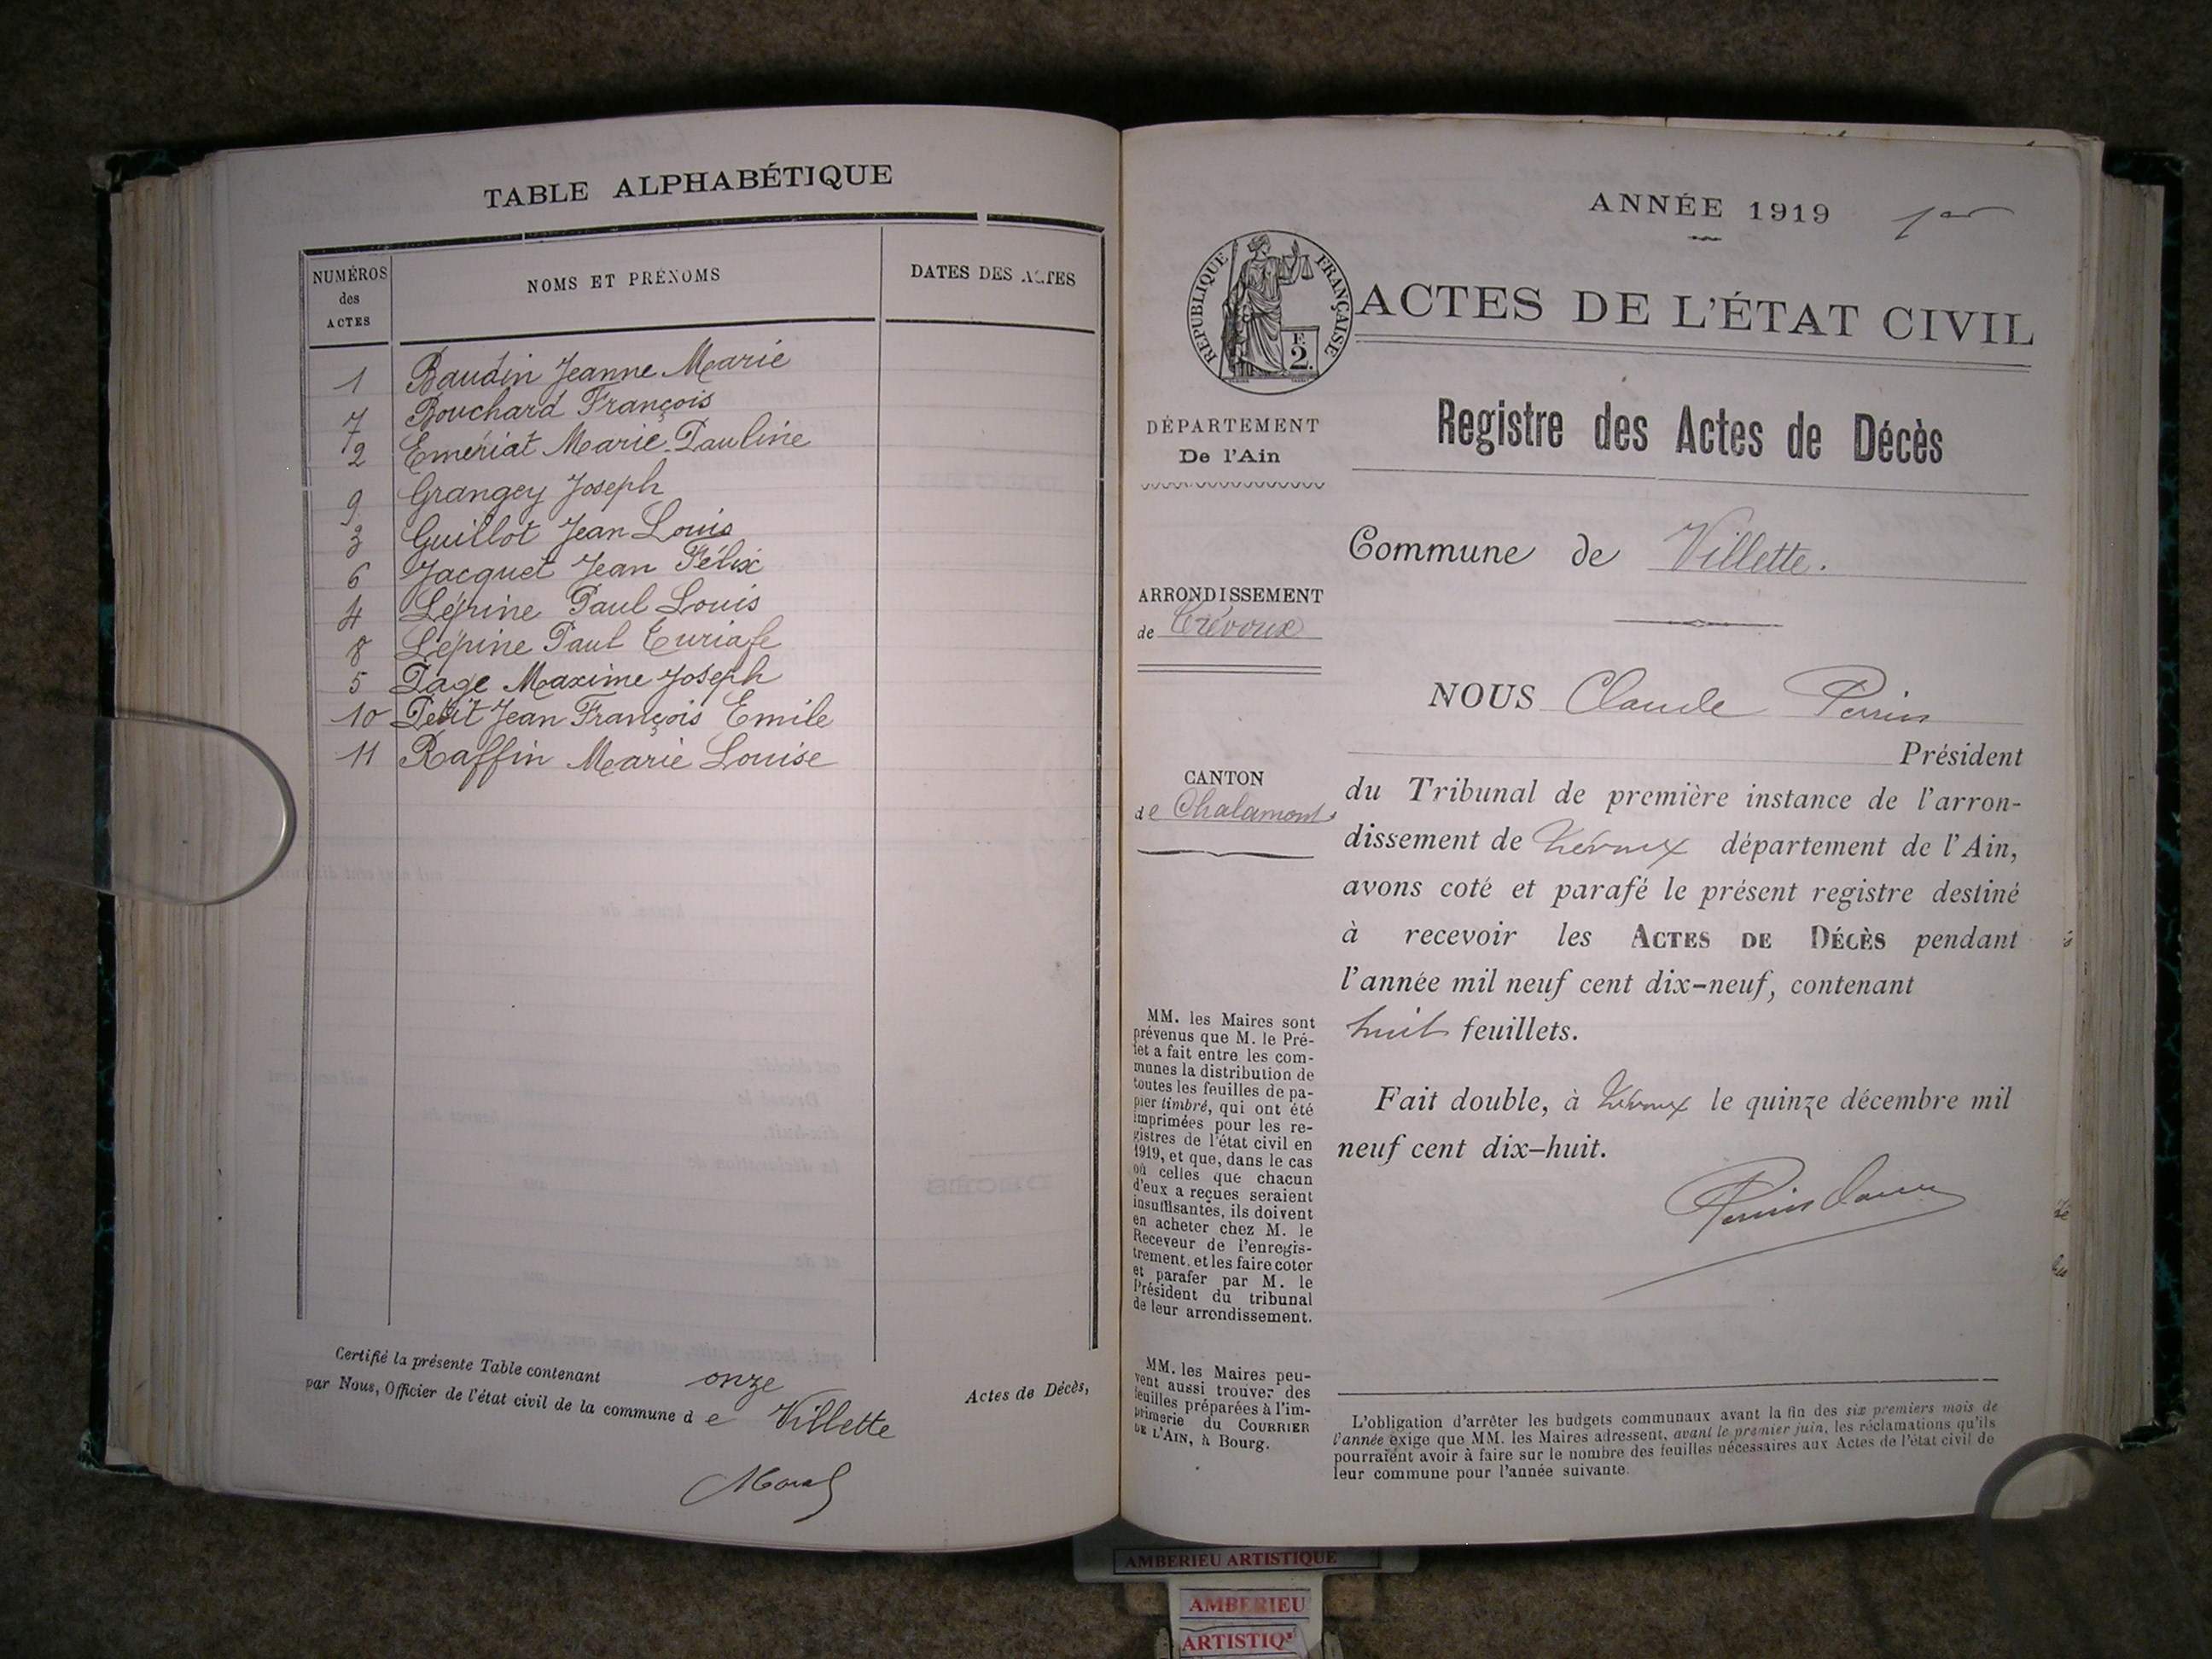 TABLE ALPHABÉTIQUE
NUMÉROS
des
ACTES
NOMS ET PRÉNOMS
DATES DES ACTES
1 Baudin Jeanne Marie
7 Bouchard François
2 Emeriat Marie-Pauline
9 Grangey Joseph
3 Guillot Jean Louis
6 Jacquet Jean Félix
4 Lépine Paul Louis
8 Lépine Paul
5 Page Maxime Joseph
10 Petit Jean François Emile
11 Raffin Marie Louise
Certifié la présente Table contenant onze Actes de Décès,
par Nous, Officier de l'état civil de la commune de Villette
Morel
ANNÉE 1919 1er
RÉPUBLIQUE FRANÇAISE
2
ACTES DE L'ÉTAT CIVIL
Registre des Actes de Décès
DÉPARTEMENT
De l'Ain
Commune de Villette.
ARRONDISSEMENT
de Trévoux
CANTON
de Chalamont
MM. les Maires sont
prévenus que M. le Pré-
fet a fait entre les com-
munes la distribution de
toutes les feuilles de pa-
pier timbré, qui ont été
imprimées pour les re-
gistres de l'état civil en
1919, et que, dans le cas
où celles que chacun
d'eux a reçues seraient
insuffisantes, ils doivent
en acheter chez M. le
Receveur de l'enregis-
trement, et les faire coter
et parafer par M. le
Président du tribunal
de leur arrondissement.
MM. les Maires peu-
vent aussi trouver des
feuilles préparées à l'im-
primerie du COURRIER
DE L'AIN, à Bourg.
NOUS Claude Perrin
Président
du Tribunal de première instance de l'arron-
dissement de Trévoux département de l'Ain,
avons coté et parafé le présent registre destiné
à recevoir les ACTES DE DÉCÈS pendant
l'année mil neuf cent dix-neuf, contenant
huit feuillets.
Fait double, à Trévoux le quinze décembre mil
neuf cent dix-huit.
L'obligation d'arrêter les budgets communaux avant la fin des six premiers mois de
l'année exige que MM. les Maires adressent, avant le premier juin, les réclamations qu'ils
pourraient avoir à faire sur le nombre des feuilles nécessaires aux Actes de l'état civil de
leur commune pour l'année suivante.
AMBERIEU ARTISTIQUE
AMBERIEU
ARTISTIQ